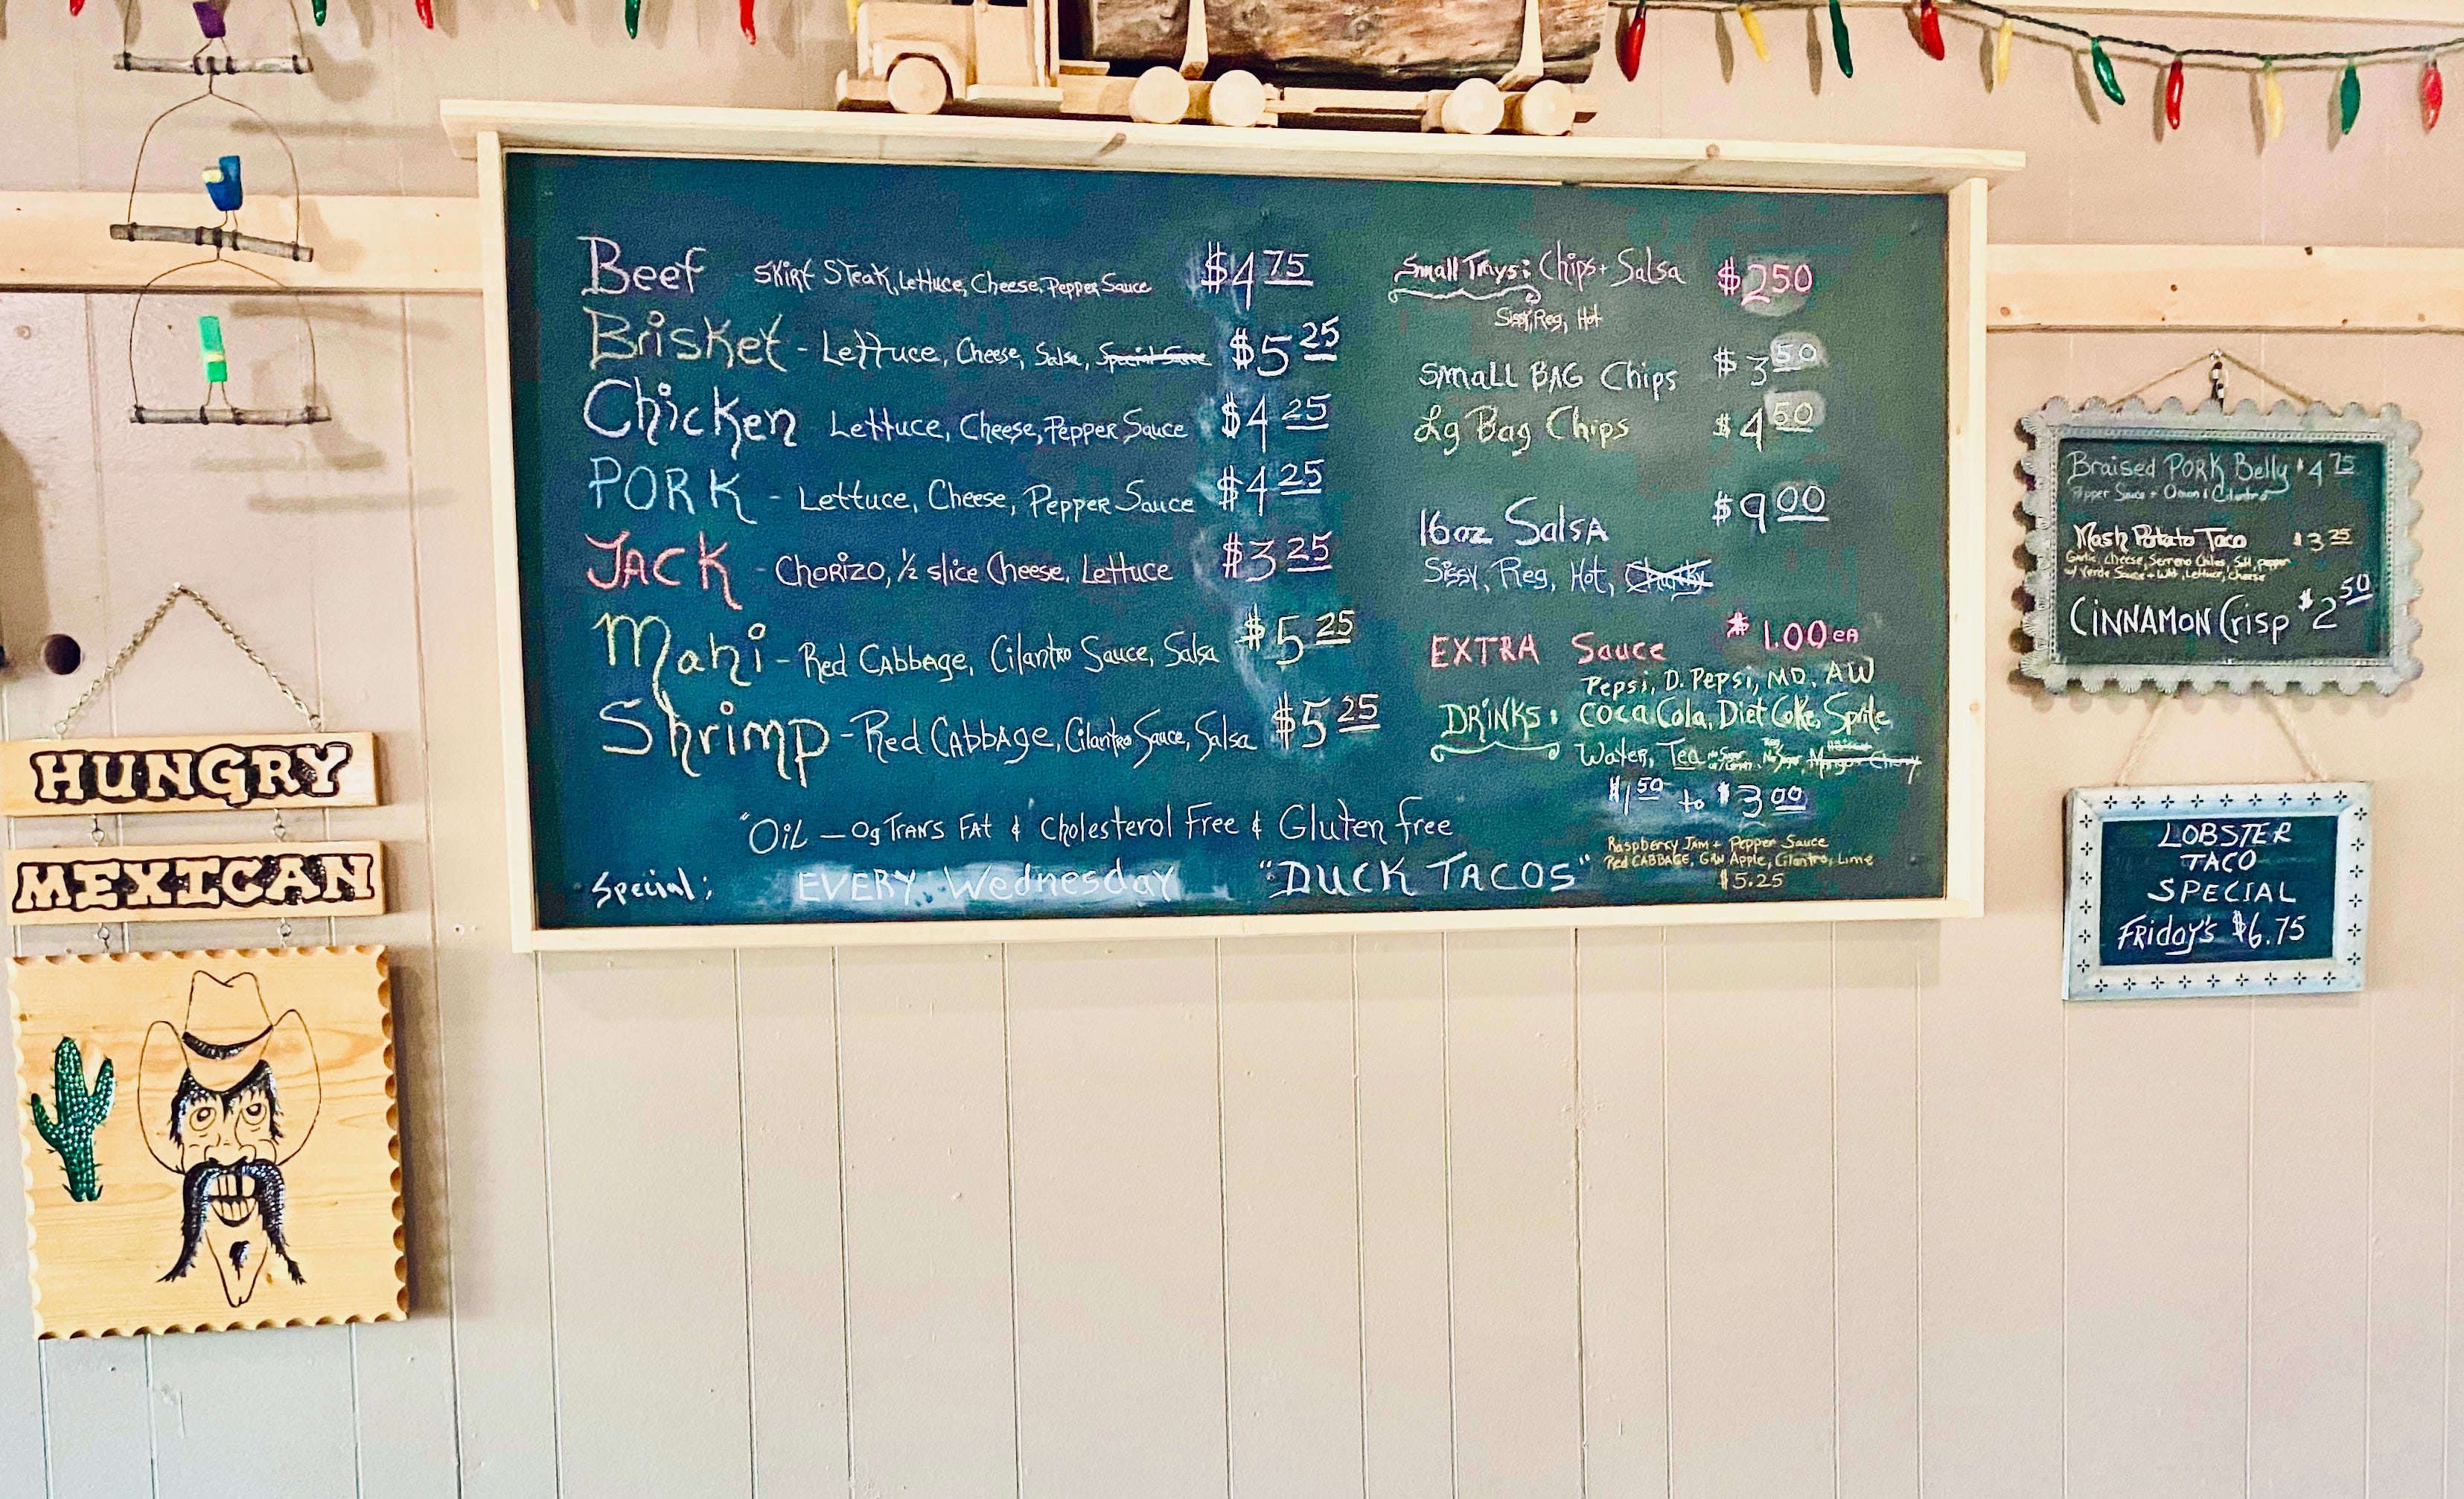 Beef Skirt Steak, Lettuce, Cheese, Pepper Sauce $4 75
Brisket - Lettuce, Cheese, Salsa, Special Sauce $5 25
Chicken Lettuce, Cheese, Pepper Sauce $4 25
PORK - Lettuce, Cheese, Pepper Sauce $4 25
JACK - Chorizo, ½ slice Cheese, Lettuce $3 25
Mahi - Red Cabbage, Cilantro Sauce, Salsa $5 25
Shrimp - Red Cabbage, Cilantro Sauce, Salsa $5 25
"Oil - 0g Trans Fat & Cholesterol Free & Gluten free
Special; EVERY Wednesday "DUCK TACOS"
Raspberry Jam + Pepper Sauce
Red CABBAGE, GRN Apple, Cilantro, Lime
$5.25
Small Trays: Chips + Salsa $250
Sissy, Reg, Hot
Small BAG Chips $3 50
Lg Bag Chips $4 50
16oz SalsA $9 00
Sissy, Reg, Hot, Chunky
EXTRA Sauce $1.00 eA
Pepsi, D. Pepsi, MD, AW
DRINKS: Coca Cola, Diet Coke, Sprite,
Water, Tea
$1 50 to $3 00
Braised PORK Belly $4 75
Pepper Sauce + Onion & Cilantro
Mash Potato Taco $3 25
Garlic, Cheese, Serreno Chiles, Salt, pepper
w/ Verde Sauce + Lettuce, Cheese
CINNAMON Crisp $2 50
LOBSTER
TACO
SPECIAL
FRiday's $6.75
HUNGRY
MEXICAN